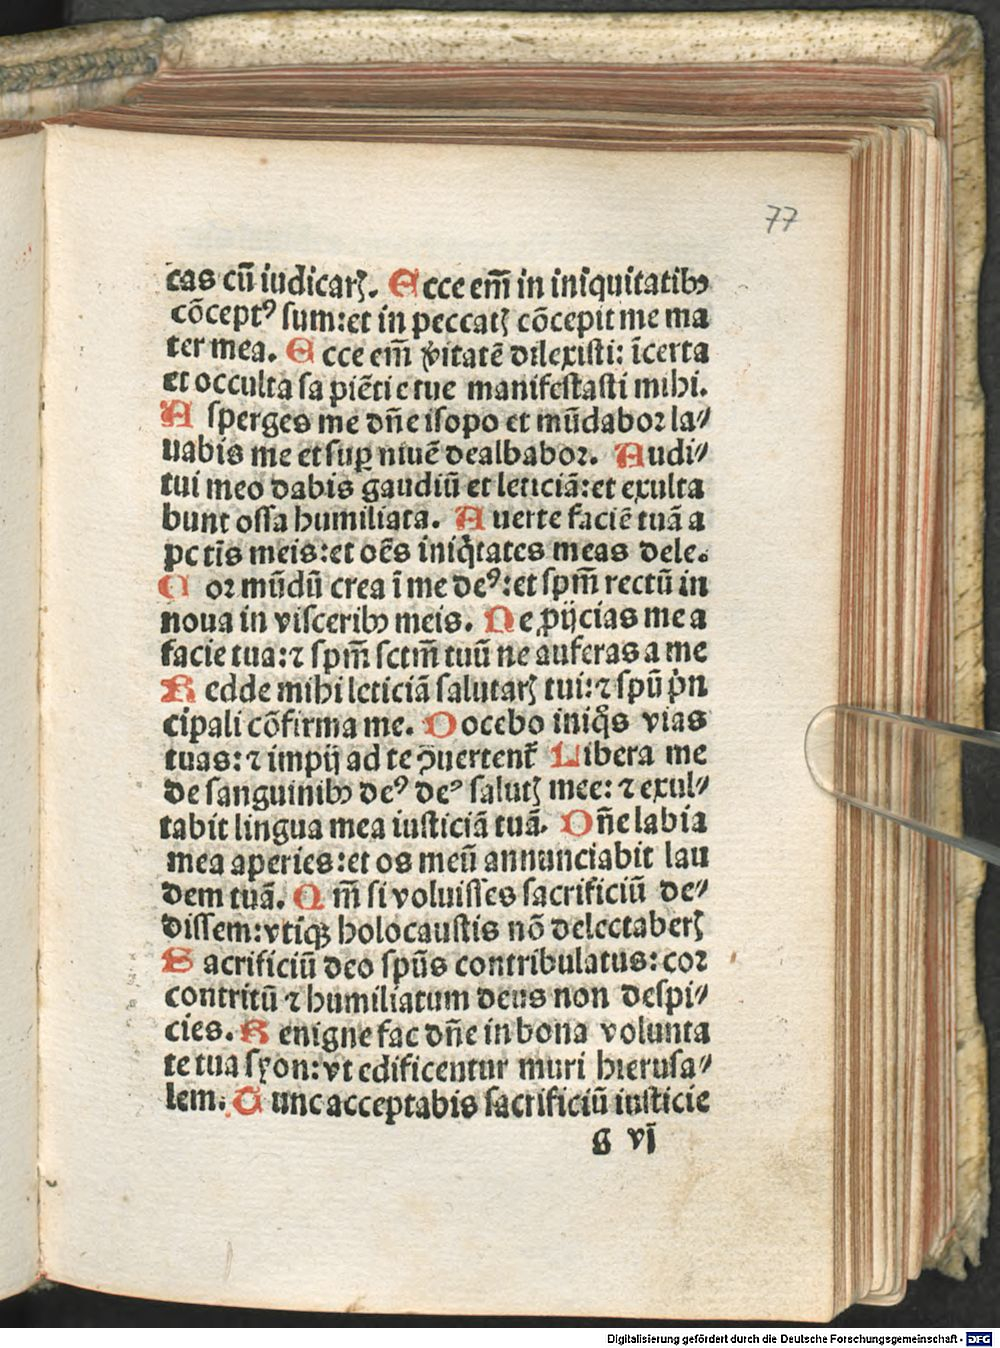 77
cas cū iudicarꝭ. Ecce em̄ in iniquitatibꝰ
cōceptꝰ sum: et in peccatꝭ cōcepit me ma
ter mea. Ecce em̄ v̓itatē dilexisti: īcerta
et occulta sapiētie tue manifestasti mihi.
Asperges me dn̄e isopo et mūdabor la⸗
uabis me et suꝑ niuē dealbabor. Audi⸗
tui meo dabis gaudiū et leticiā: et exulta
bunt ossa humiliata. Auerte faciē tuā a
pctīs meis: et oēs iniqͥtates meas dele.
Cor mūdū crea ī me deꝰ: et spm̄ rectū in
noua in visceribꝰ meis. Ne ꝓijcias me a
facie tua: ⁊ spm̄ sctm̄ tuū ne auferas a me
Redde mihi leticiā salutarꝭ tui: ⁊ spū pͥn
cipali cōfirma me. Docebo iniqͦs vias
tuas: ⁊ impij ad te ꝯuertent᷑ Libera me
de sanguinibꝰ deꝰ deꝰ salutꝭ mee: ⁊ exul⸗
tabit lingua mea iusticiā tuā. Dn̄e labia
mea aperies: et os meū annunciabit lau
dem tuā. Qm̄ si voluisses sacrificiū de⸗
dissem: vtiqꝫ holocaustis nō delectaberꝭ
Sacrificiū deo spūs contribulatus: cor
contritū ⁊ humiliatum deus non despi⸗
cies. Benigne fac dn̄e in bona volunta
te tua syon: vt edificentur muri hierusa⸗
lem. Tunc acceptabis sacrificiū iusticie
G vj
Digitalisierung gefördert durch die Deutsche Forschungsgemeinschaft - DFG